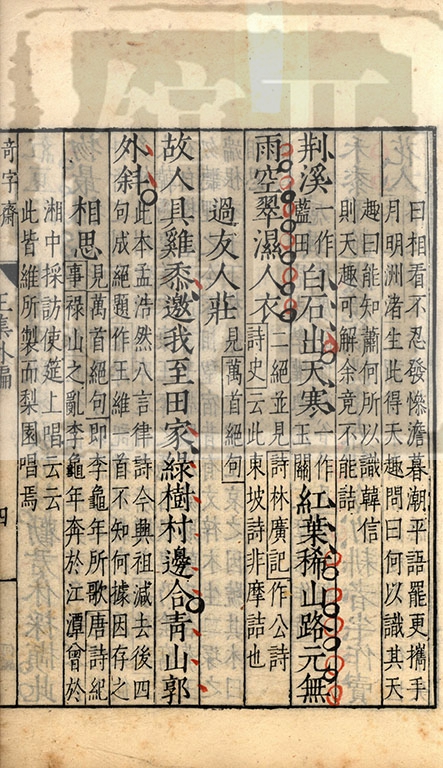 曰相看不忍發慘澹暮潮平語罷更攜手
月明洲渚生此得天趣問曰何以識其天
趣曰能知蕭何所以識韓信
則天趣可解余竟不能詰
荆溪一作藍田白石山天寒一作玉關紅葉稀山路元無
雨空翠濕人衣二絕並見詩林廣記作公詩
詩史云此東坡詩非摩詰也
過友人莊見萬首絕句
故人具雞黍邀我至田家綠樹村邊合青山郭
外斜此本孟浩然八言律詩今興祖減去後四
句成絕題作王維一首不知何據因存之
相思見萬首絕句即李龜年所歌唐詩紀
事祿山之亂李龜年奔於江潭曾於
湘中採訪使筵上唱云云
此皆維所製而梨園唱焉
奇字齋
四